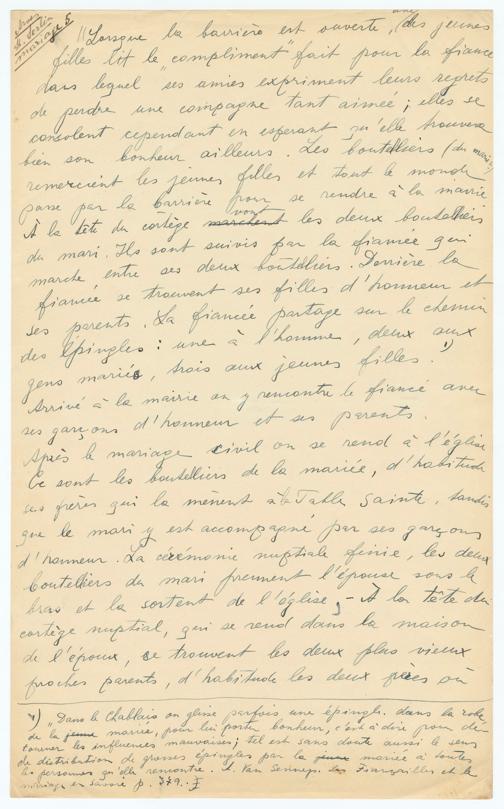 mariage 5
"Lorsque la barrière est ouverte, une (des jeunes
filles lit le "compliment" fait pour la fiancée
dans lequel ses amies expriment leurs regrets
de perdre une compagne tant aimée ; elles se
consolent cependant en esperant qu'elle trouvera
bien son bonheur ailleurs. Les boutelliers (du mari)
remercient les jeunes filles et tout le monde
passe par la barrière pour se rendre à la mairie.
À la tête du cortège vont les deux boutelliers
du mari. Ils sont suivis par la fiancée qui
marche entre ses deux boutelliers. Derrière la
fiancée se trouvent ses filles d'honneur et
ses parents. La fiancée partage sur le chemin
des épingles : une à l'homme, deux aux
gens mariés, trois aux jeunes filles. 1)
Arrivé à la mairie on y rencontre le fiancé avec
ses garçons d'honneur et ses parents.
Après le mariage civil on se rend à l'église
Ce sont les boutelliers de la mariée, d'habitude
ses frères qui la mènent à la Table Sainte, tandis
que le mari y est accompagné par ses garçons
d'honneur. La cérémonie nuptiale finie, les deux
boutelliers du mari prennent l'épouse sous le
bras et la sortent de l'église. – À la tête du
cortège nuptial, qui se rend dans la maison
de l'époux, se trouvent les deux plus vieux
proches parents, d'habitude les deux pères où
1) "Dans le Chablais on glisse parfois une épingle dans la robe
de la mariée, pour lui porter bonheur, c'est à dire pour dé-
tourner les influences mauvaises; tel est sans doute aussi le sens
de distribution de grosses épingles par la mariée à toutes
les personnes qu'elle rencontre. A. Van Gennep. Fiançailles et le
mariage en Savoie p. 779. I